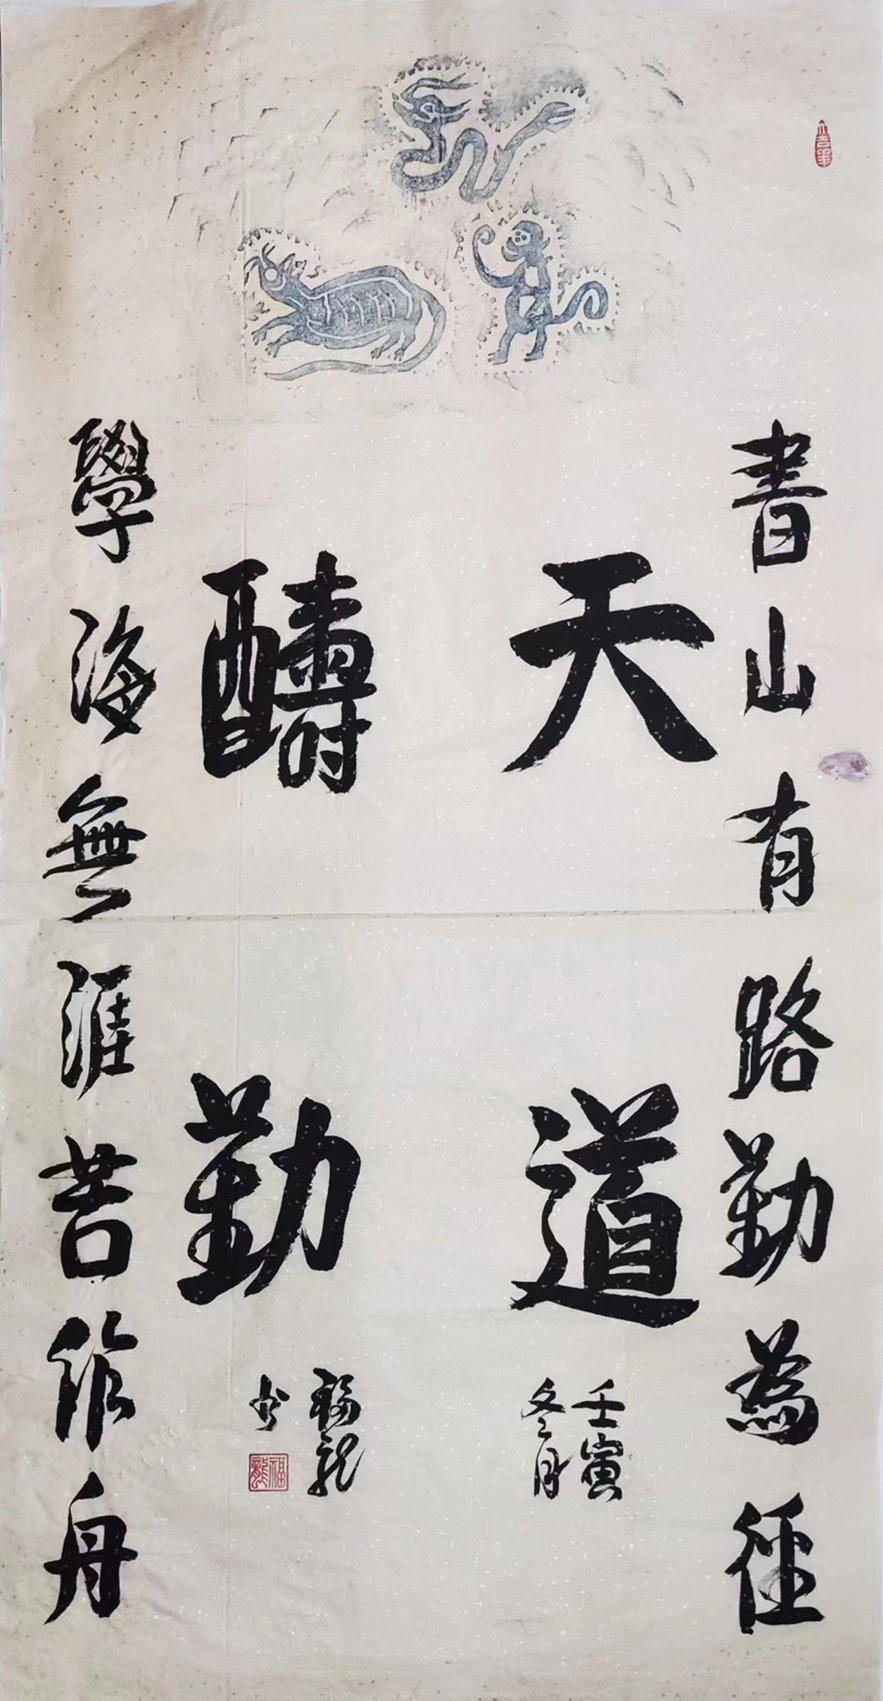 書山有路勤為徑
天道
醻勤
學海無涯苦作舟
壬寅
冬月
福龍
书
福龍